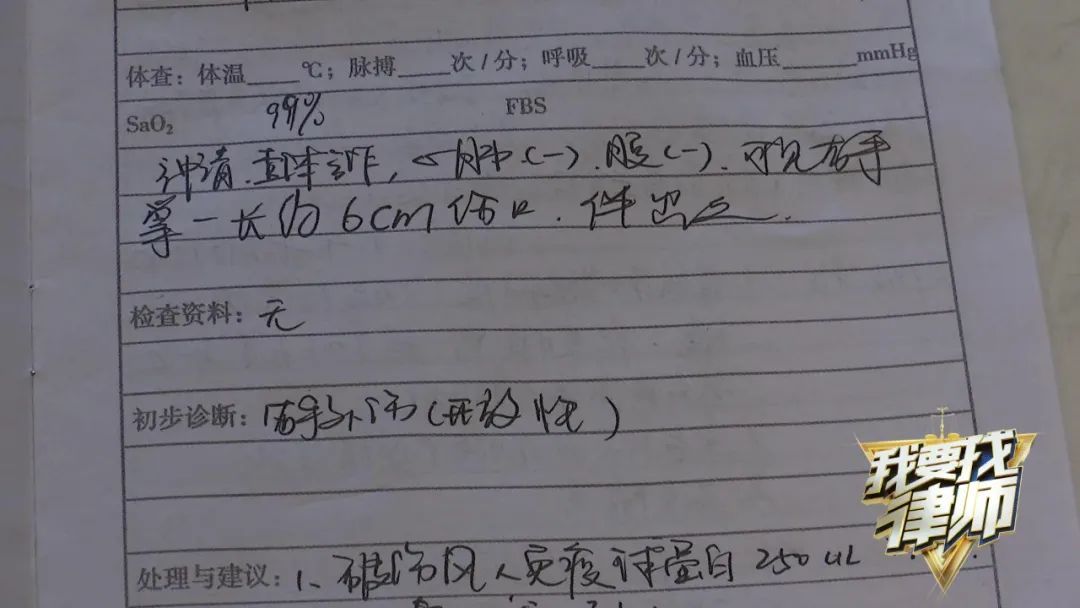 体查：体温____℃；脉搏____次/分；呼吸____次/分；血压____mmHg
SaO₂ 99% FBS
神清，查体合作，心肺(-)，腹(-)，可见右手
掌一长约6cm伤口，伴出血。
检查资料：无
初步诊断：手外伤(开放性)
处理与建议：1、破伤风人免疫球蛋白 250 u
我要找
律师